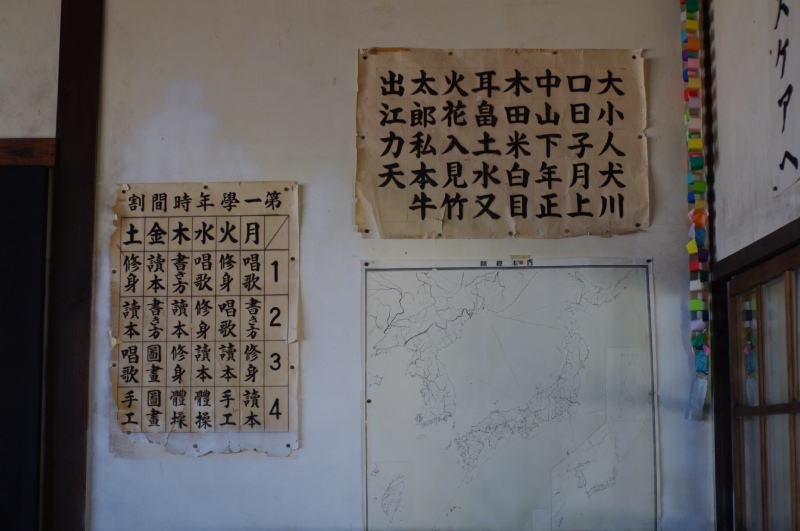 ケアヘ
大小人犬川
口日子月上
中山下年正
木田米白目
耳畠土水又
火花入見竹
太郎私本牛
出江力天
第一學年時間割
1 2 3 4
月 唱歌 書き方 修身 讀本
火 修身 唱歌 讀本 手工
水 唱歌 修身 讀本 體操
木 書き方 讀本 修身 體操
金 讀本 書き方 圖畫 圖畫
土 修身 讀本 唱歌 手工